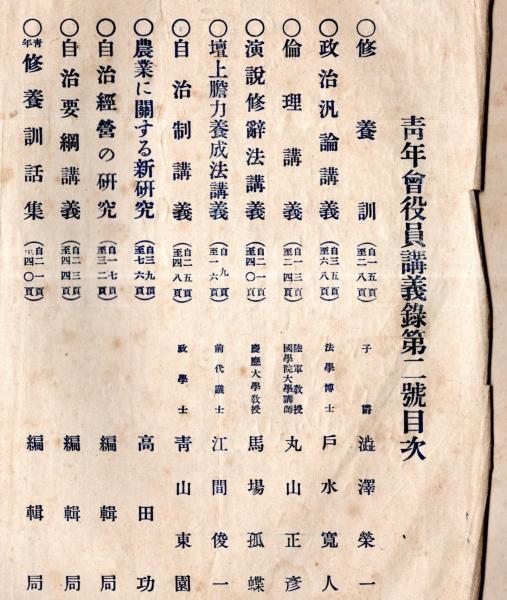 靑年會役員講義錄第二號目次
〇修養訓（自一五頁至二八頁）子爵 澁澤榮一
〇政治汎論講義（自三五頁至六八頁）法學博士 戶水寬人
〇倫理講義（自二三頁至一四頁）陸軍敎授 國學院大學講師 丸山正彥
〇演說修辭法講義（自二一頁至四〇頁）慶應大學敎授 馬場孤蝶
〇壇上膽力養成法講義（自九頁至一六頁）前代議士 江間俊一
〇自治制講義（自二五頁至四八頁）政學士 靑山東園
〇農業に關する新研究（自三九頁至七六頁）高田功
〇自治經營の研究（自一七頁至三二頁）編輯局
〇自治要綱講義（自二三頁至四四頁）編輯局
〇靑年修養訓話集（自二一頁至四〇頁）編輯局